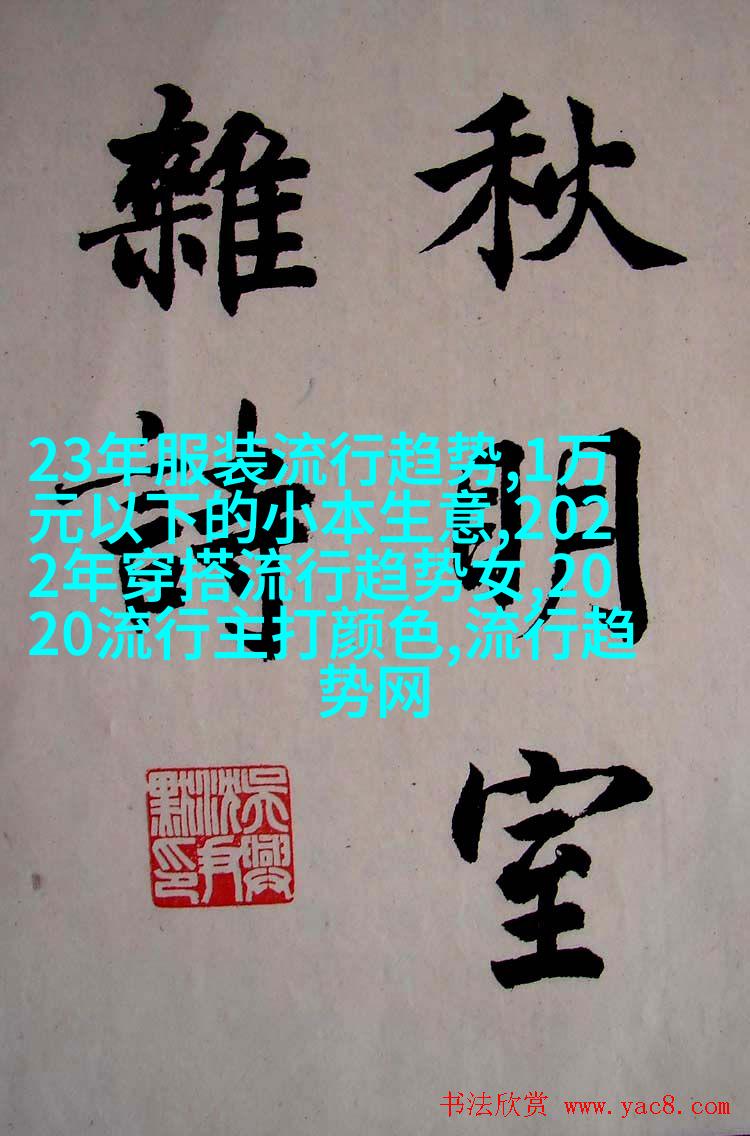 秋明室
雜詩
23年服装流行趋势,1万
元以下的小本生意,202
2年穿搭流行趋势女,20
20流行主打颜色,流行趋
势网
吳興
沈尹
默印
书法欣赏 www.yac8.com